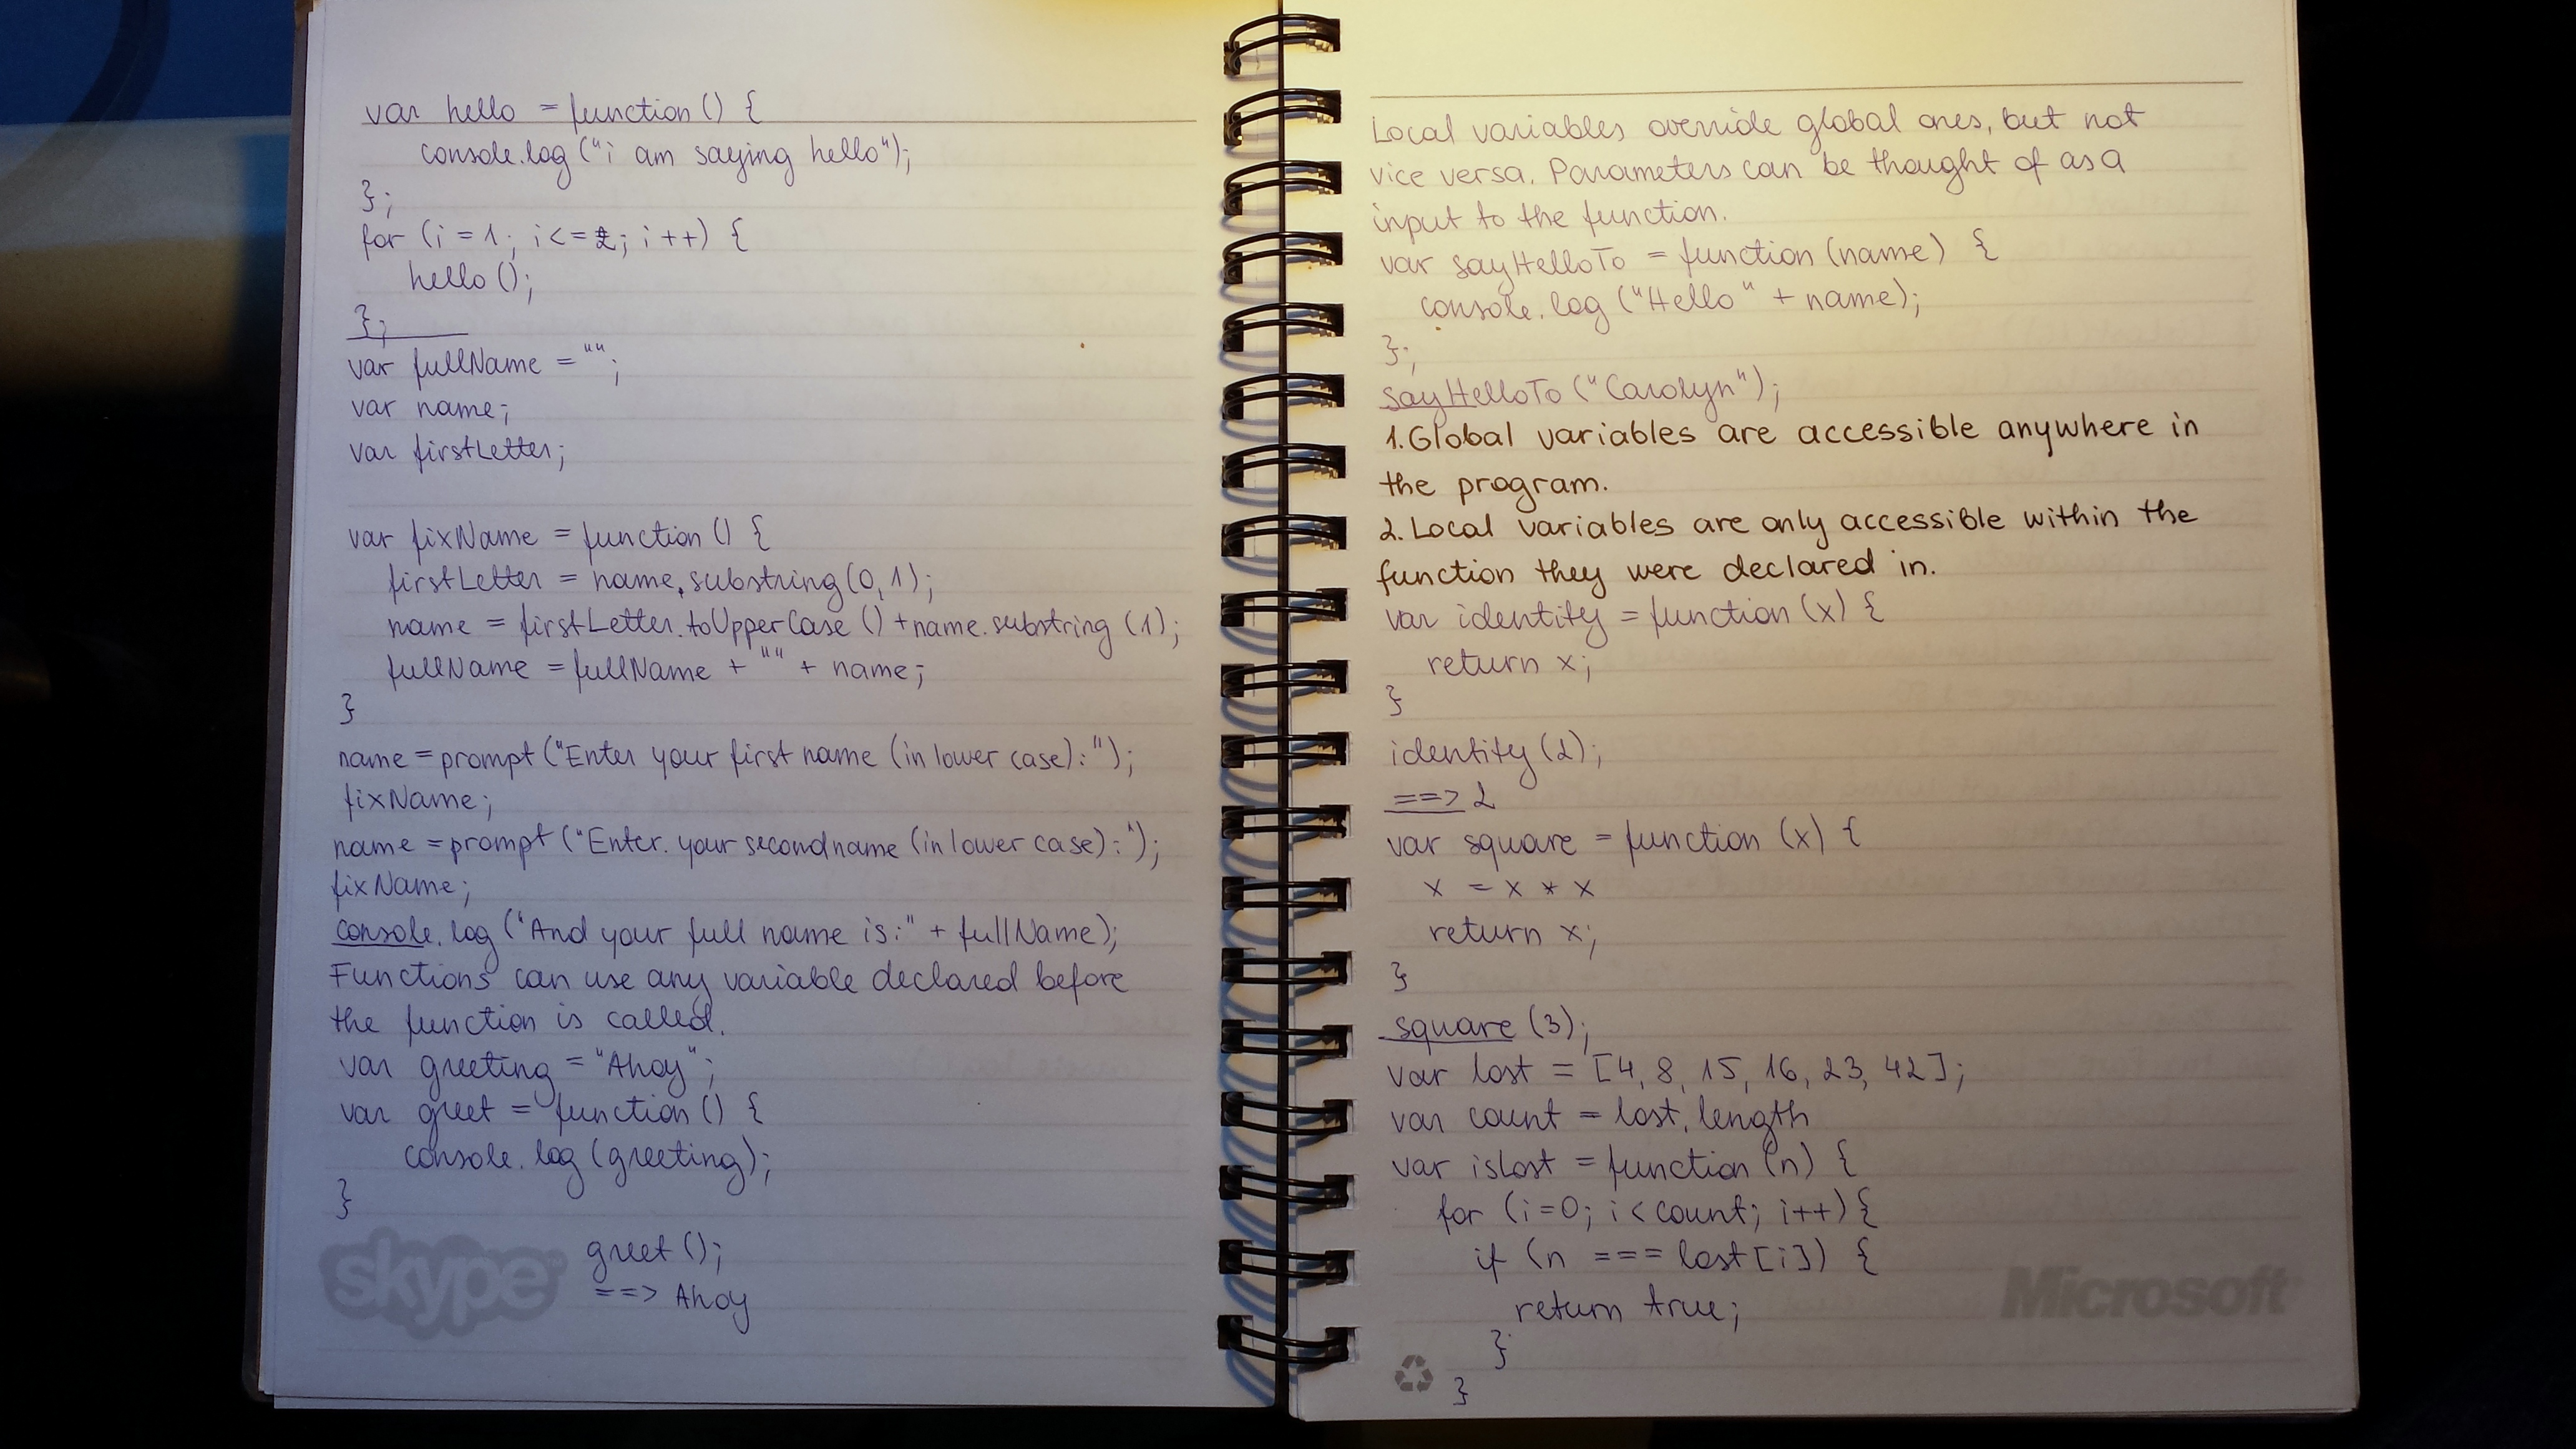 var hello = function () {
console.log ("i am saying hello");
};
for (i = 1; i <= 2; i ++) {
hello ();
};
var fullName = "";
var name;
var firstLetter;
var fixName = function () {
firstLetter = name.substring (0, 1);
name = firstLetter.toUpperCase () + name.substring (1);
fullName = fullName + "" + name;
}
name = prompt ("Enter your first name (in lower case):");
fixName;
name = prompt ("Enter. your second name (in lower case):");
fixName;
console.log ("And your full name is:" + fullName);
Functions can use any variable declared before
the function is called.
var greeting = "Ahoy";
var greet = function () {
console.log (greeting);
}
greet ();
==> Ahoy
skype
Local variables override global ones, but not
vice versa. Parameters can be thought of as a
input to the function.
var sayHelloTo = function (name) {
console.log ("Hello" + name);
};
sayHelloTo ("Carolyn");
1. Global variables are accessible anywhere in
the program.
2. Local variables are only accessible within the
function they were declared in.
var identity = function (x) {
return x;
}
identity (2);
==> 2
var square = function (x) {
x = x * x
return x;
}
square (3);
var lost = [4, 8, 15, 16, 23, 42];
var count = lost.length
var isLost = function (n) {
for (i=0; i < count; i++) {
if (n === lost [i]) {
return true;
}
}
Microsoft